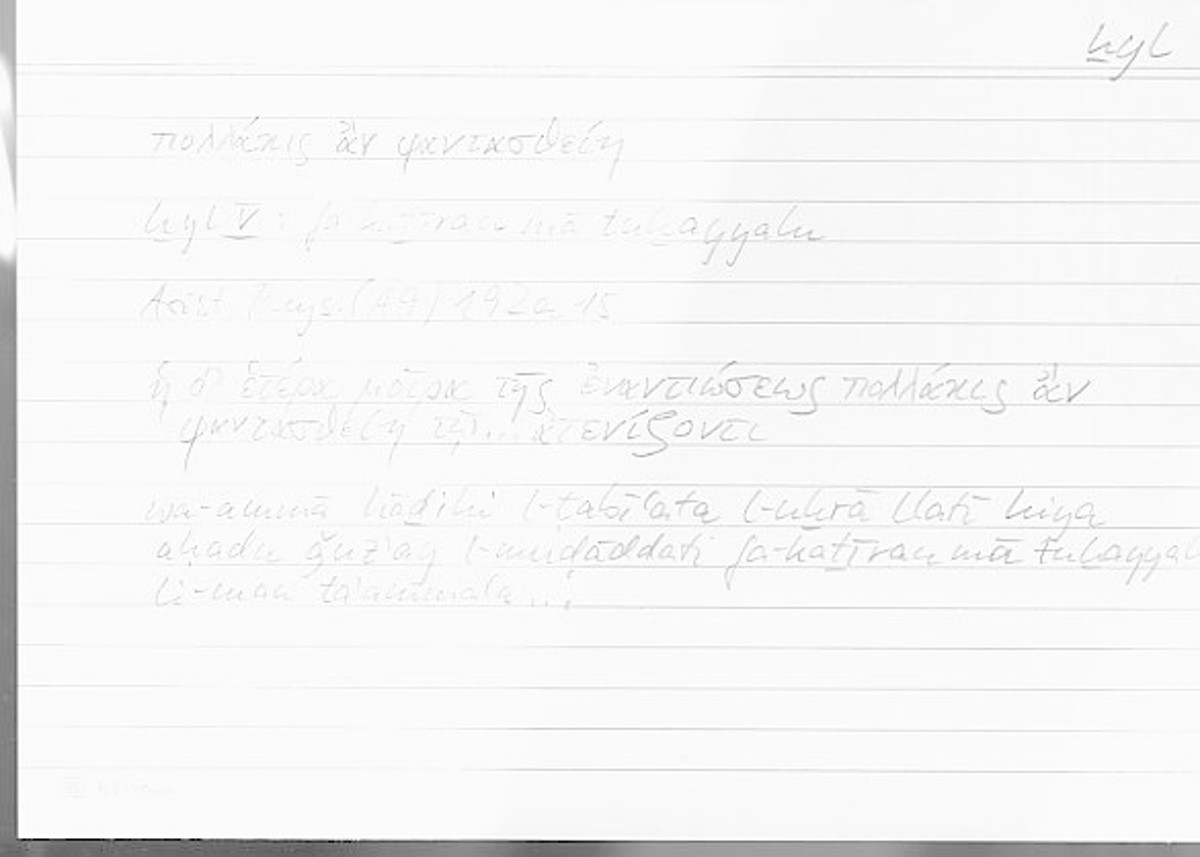 ḫyl
πολλάκις ἂν φαντασθείη
ḫyl V : fa-kaṯīran mā tuḫayyalu
Arist. Phys. (A9) 192a 15
ἡ δ' ἑτέρα μοῖρα τῆς ἐναντιώσεως πολλάκις ἂν
φαντασθείη τῷ... ἀτενίζοντι
wa-ammā hāḏihi l-ṭabīʿata l-uḫrā llatī hiya
aḥadu ǧuzʾay l-muḍāddati fa-kaṯīran mā tuḫayyal
li-man taʾammala ...